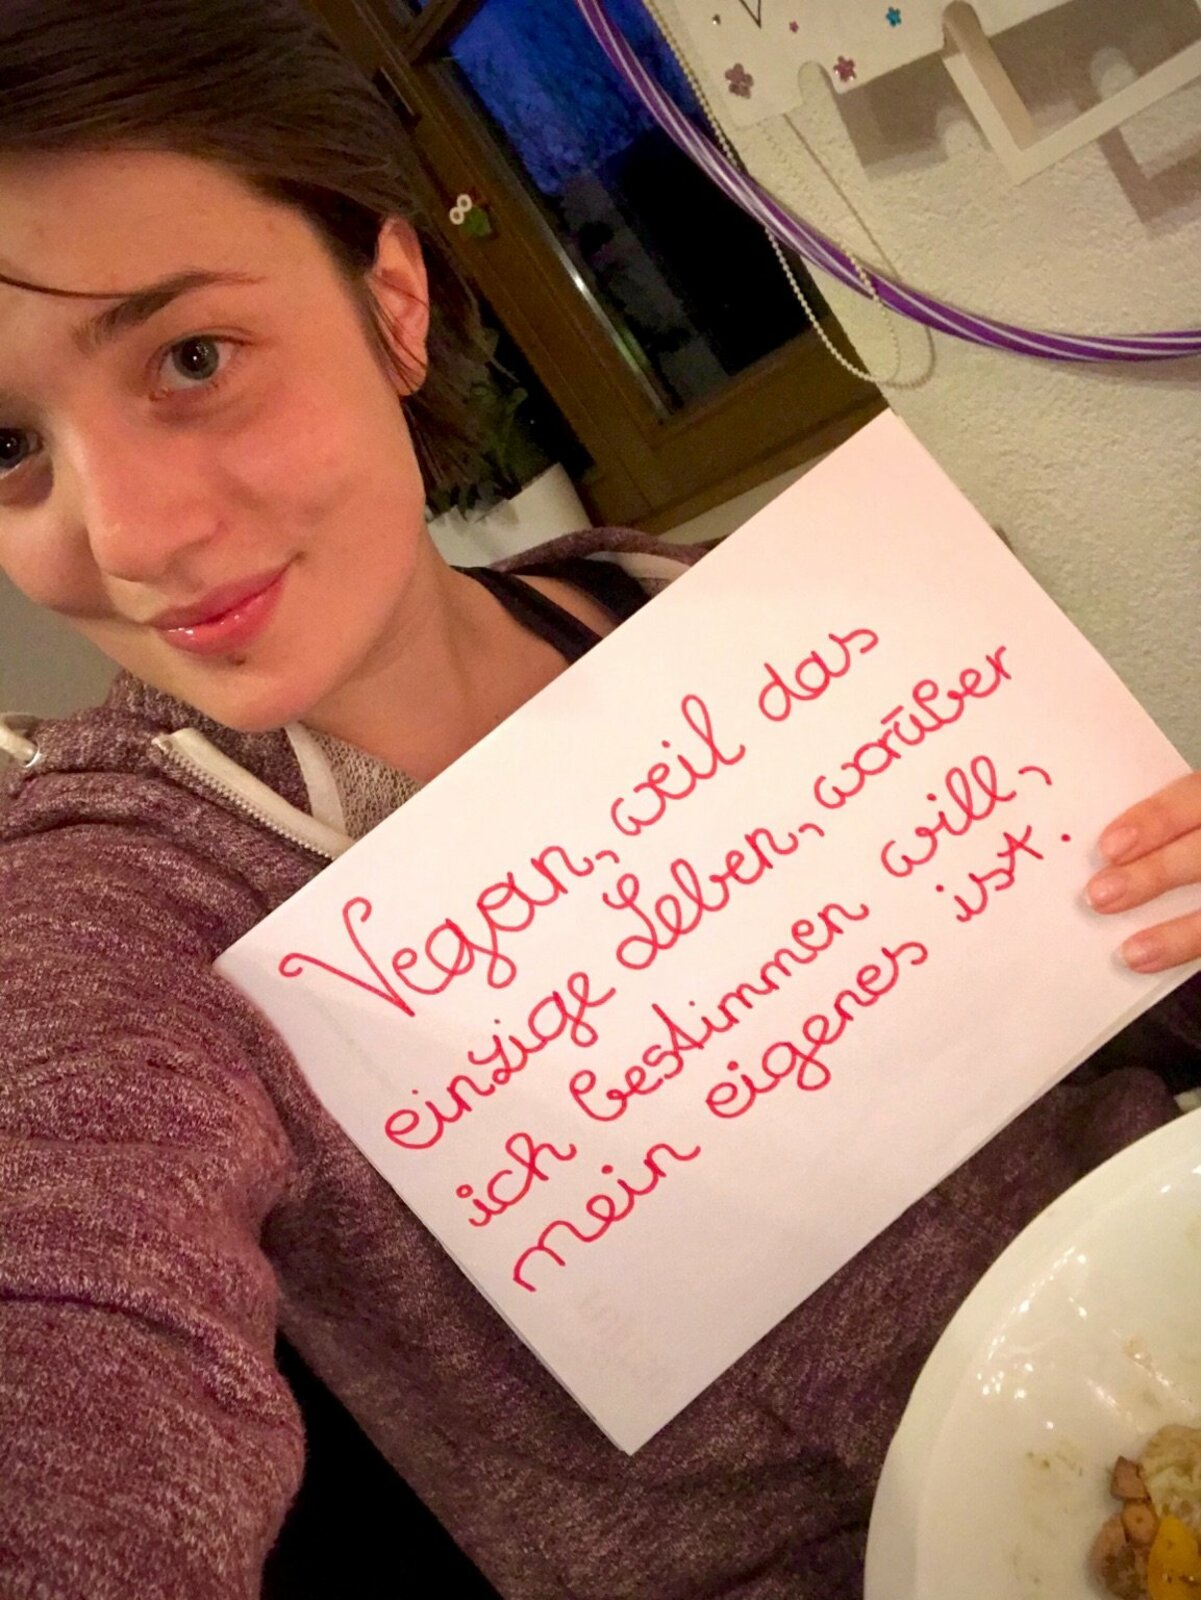 Vegan, weil das
einzige Leben, worüber
ich bestimmen will,
mein eigenes ist.